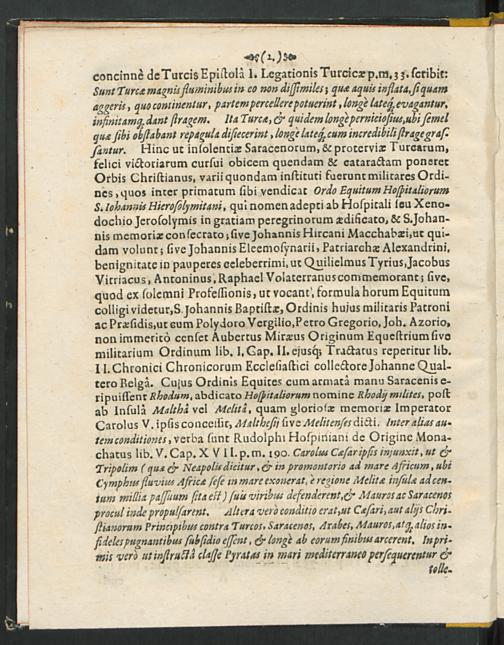 (2.)
concinnè de Turcis Epistolâ I. Legationis Turcicæ p.m. 33. scribit:
Sunt Turcæ magnis fluminibus in eo non dissimiles; quæ aquis inflata, si quam
aggeris, quo continentur, partem percellere potuerint, longè lateq́; evagantur,
infinitamq́; dant stragem. Ita Turcæ, & quidem longè perniciosius, ubi semel
quæ sibi obstabant repagula disjecerint, longè lateq́; cum incredibili strage gras-
santur. Hinc ut insolentiæ Saracenorum, & proterviæ Turcarum,
felici victoriarum cursui obicem quendam & cataractam poneret
Orbis Christianus, varii quondam instituti fuerunt militares Ordi-
nes, quos inter primatum sibi vendicat Ordo Equitum Hospitaliorum
S. Iohannis Hierosolymitani, qui nomen adepti ab Hospitali seu Xeno-
dochio Jerosolymis in gratiam peregrinorum ædificato, & S. Johan-
nis memoriæ consecrato; sive Johannis Hircani Macchabæi, ut qui-
dam volunt; sive Johannis Eleemosynarii, Patriarchæ Alexandrini,
benignitate in pauperes celeberrimi, ut Quilielmus Tyrius, Jacobus
Vitriacus, Antoninus, Raphael Volaterranus commemorant; sive,
quod ex solemni Professionis, ut vocant, formula horum Equitum
colligi videtur, S. Johannis Baptistæ, Ordinis huius militaris Patroni
ac Præsidis, ut cum Polydoro Vergilio, Petro Gregorio, Joh. Azorio,
non immeritò censet Aubertus Miræus Originum Equestrium sive
militarium Ordinum lib. I. Cap. II. ejusq́; Tractatus reperitur lib.
II. Chronici Chronicorum Ecclesiastici collectore Johanne Qual-
tero Belgâ. Cujus Ordinis Equites cum armatâ manu Saracenis e-
ripuissent Rhodum, abdicato Hospitaliorum nomine Rhodij milites, post
ab Insulâ Malthâ vel Melitâ, quam gloriosæ memoriæ Imperator
Carolus V. ipsis concessit, Malthesij sive Melitenses dicti. Inter alias au-
tem conditiones, verba sunt Rudolphi Hospiniani de Origine Mona-
chatus lib. V. Cap. XVII. p.m. 190. Carolus Cæsar ipsis injunxit, ut &
Tripolim (quæ & Neapolis dicitur, & in promontorio ad mare Africum, ubi
Cymphus fluvius Africæ sese in mare exonerat, è regione Melitæ insulæ ad cen-
tum millia passuum sita est) suis viribus defenderent, & Mauros ac Saracenos
procul inde propulsarent. Altera verò conditio erat, ut Cæsari, aut alijs Chri-
stianorum Principibus contra Turcos, Saracenos, Arabes, Mauros, atq́; alios in-
fideles pugnantibus subsidio essent, & longè ab eorum finibus arcerent. In pri-
mis verò ut instructâ classe Pyratas in mari mediterraneo persequerentur &
tolle-